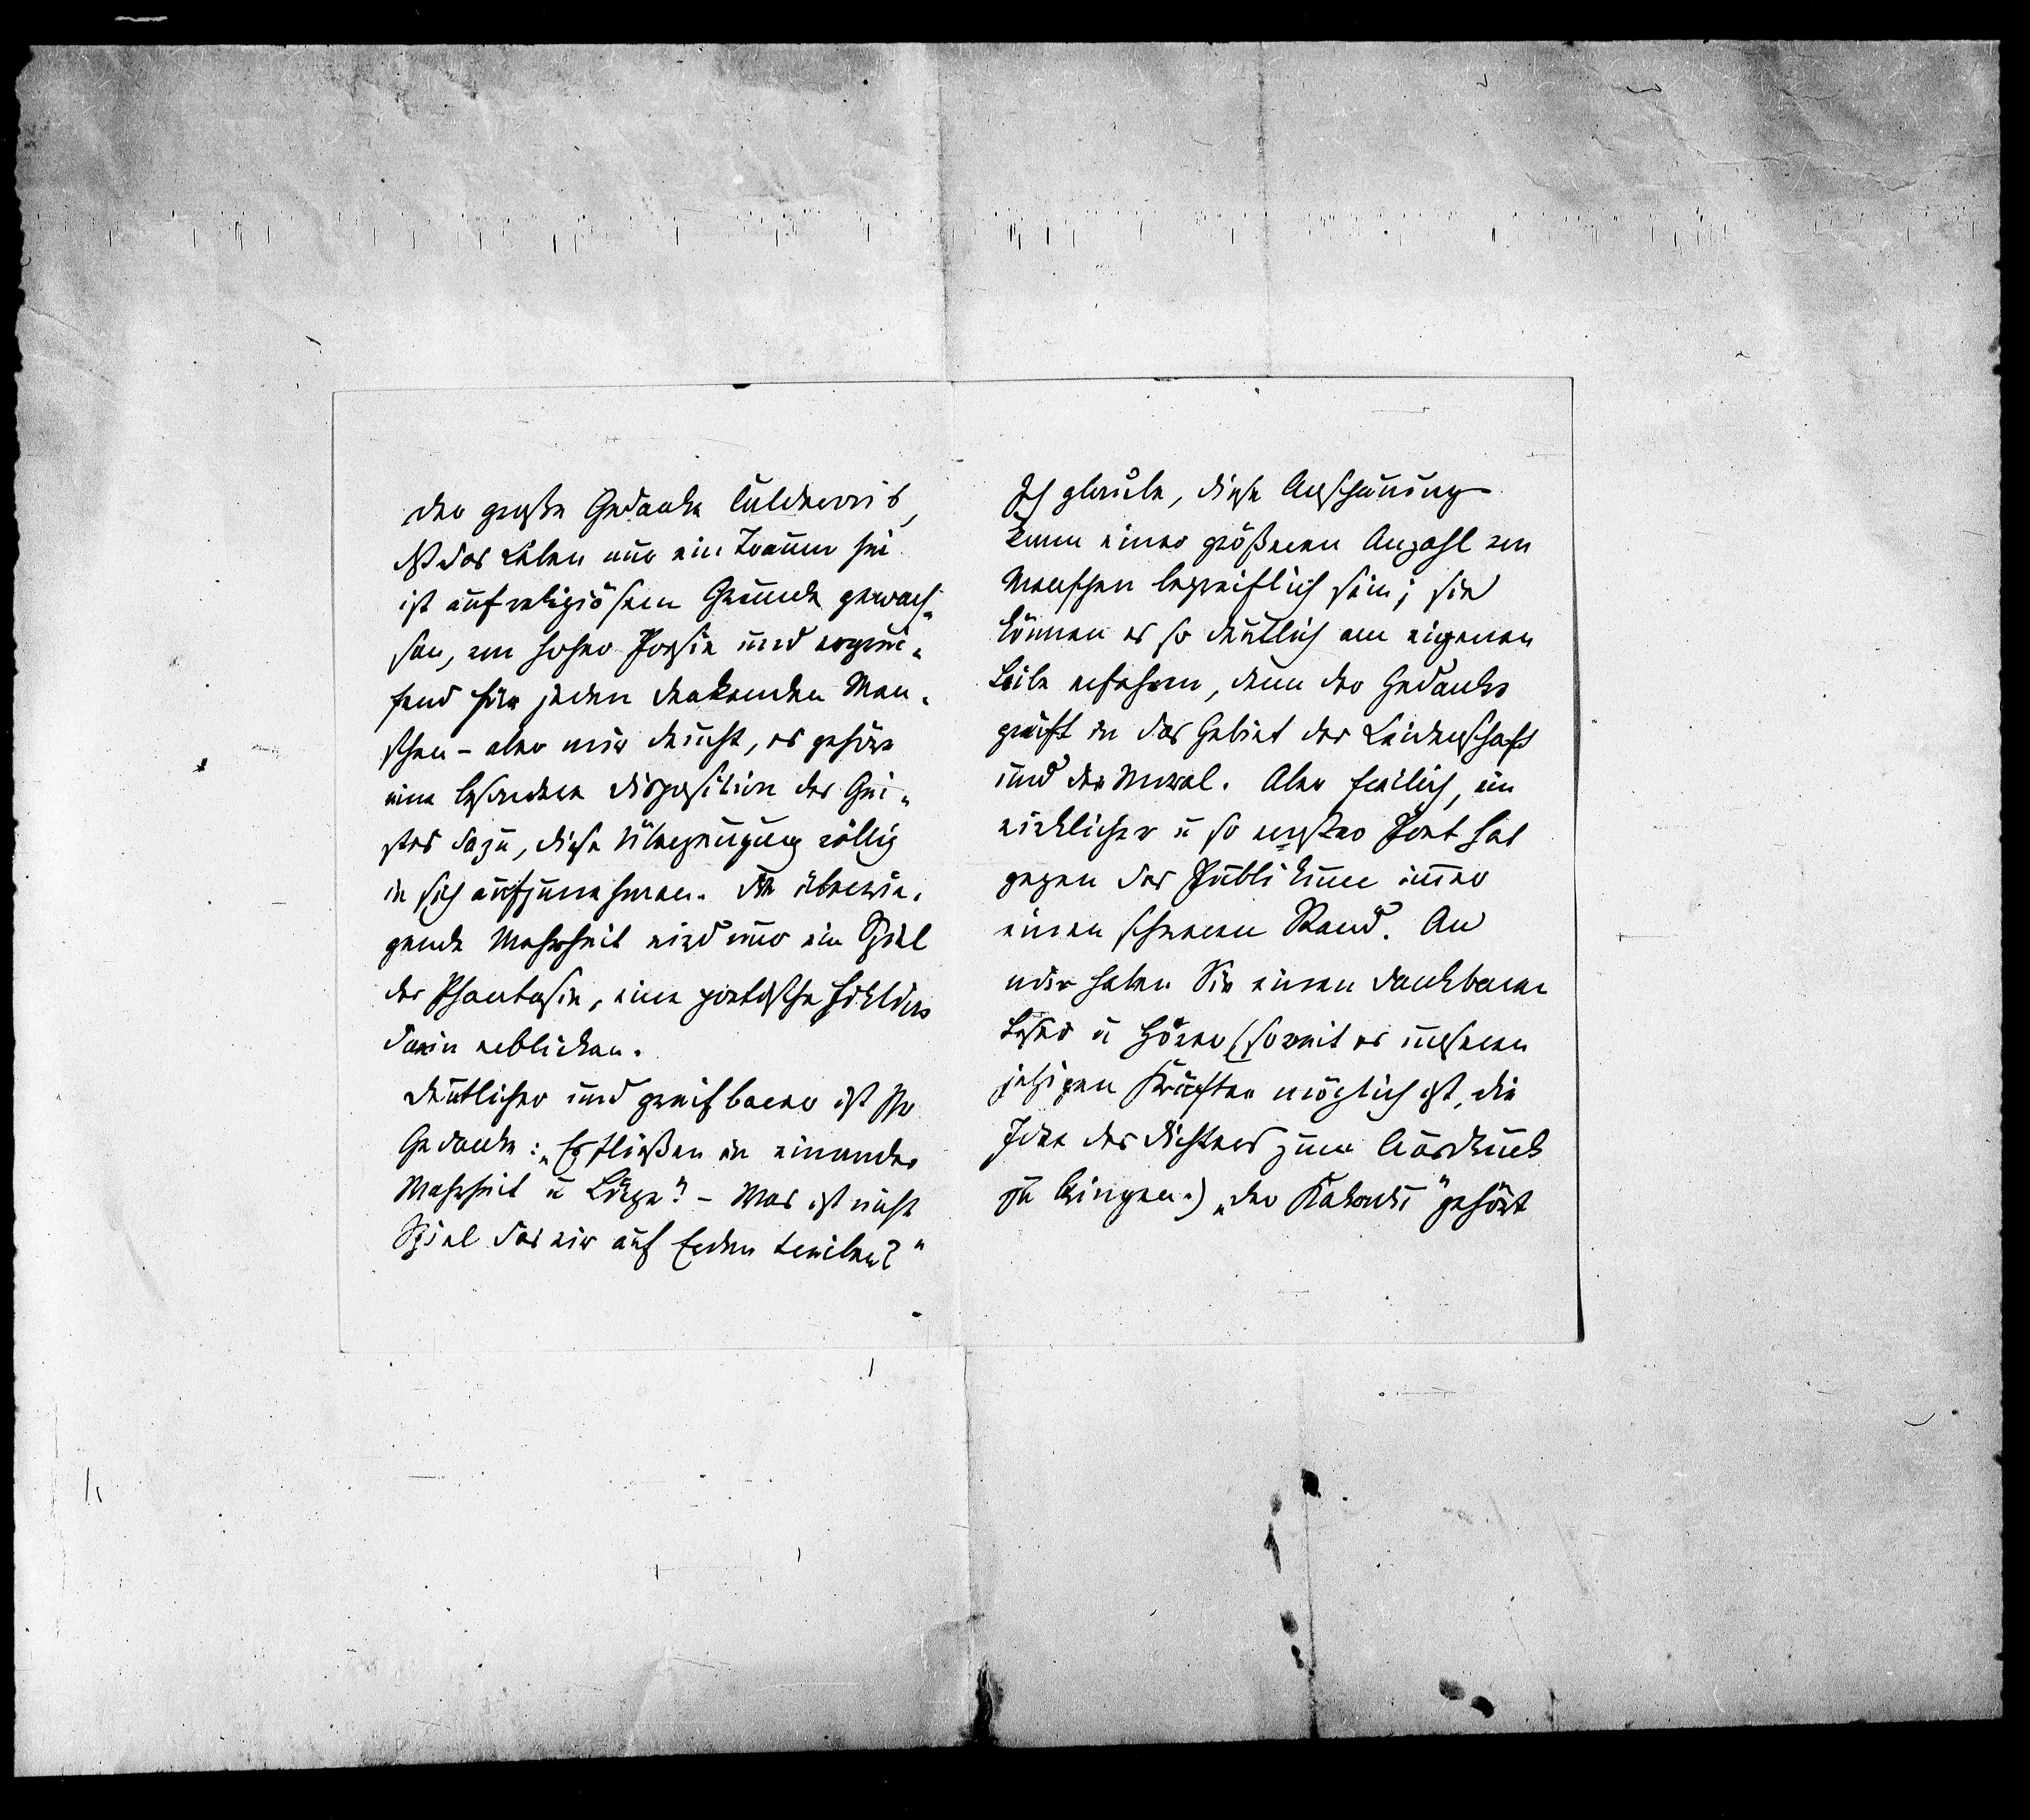 Der große Gedanke Calderons,
daß das Leben nur ein Traum sei
ist auf religiösem Grunde gewach-
sen, von hoher Poesie und ergrei-
fend für jeden denkenden Men-
schen – aber mir deucht, es gehöre
eine besondere Disposition des Gei-
stes dazu, diese Überzeugung völlig
in sich aufzunehmen. Die überwie-
gende Mehrheit wird nur ein Spiel
der Phantasie, eine poetische
darin erblicken.
Deutlicher und greifbarer ist Ihr
Gedanke: „Es fließen in einander
Wahrheit u Lüge" – Was ist nicht
Spiel das wir auf Erden treiben?"
Ich glaube, diese Anschauung
kann einer größeren Anzahl von
Menschen begreiflich sein; sie
können es so deutlich am eigenen
Leibe erfahren, denn der Gedanke
greift in das Gebiet der Leidenschaft
und der Moral. Aber freilich, ein
wirklicher u so ernster Poet hat
gegen das Publikum immer
einen schweren Stand. An
mir haben Sie einen dankbaren
Leser u Hörer (soweit es unseren
jetzigen Kräften möglich ist, die
Idee des Dichters zum Ausdruck
zu bringen.) „Der Kakadu" gehört